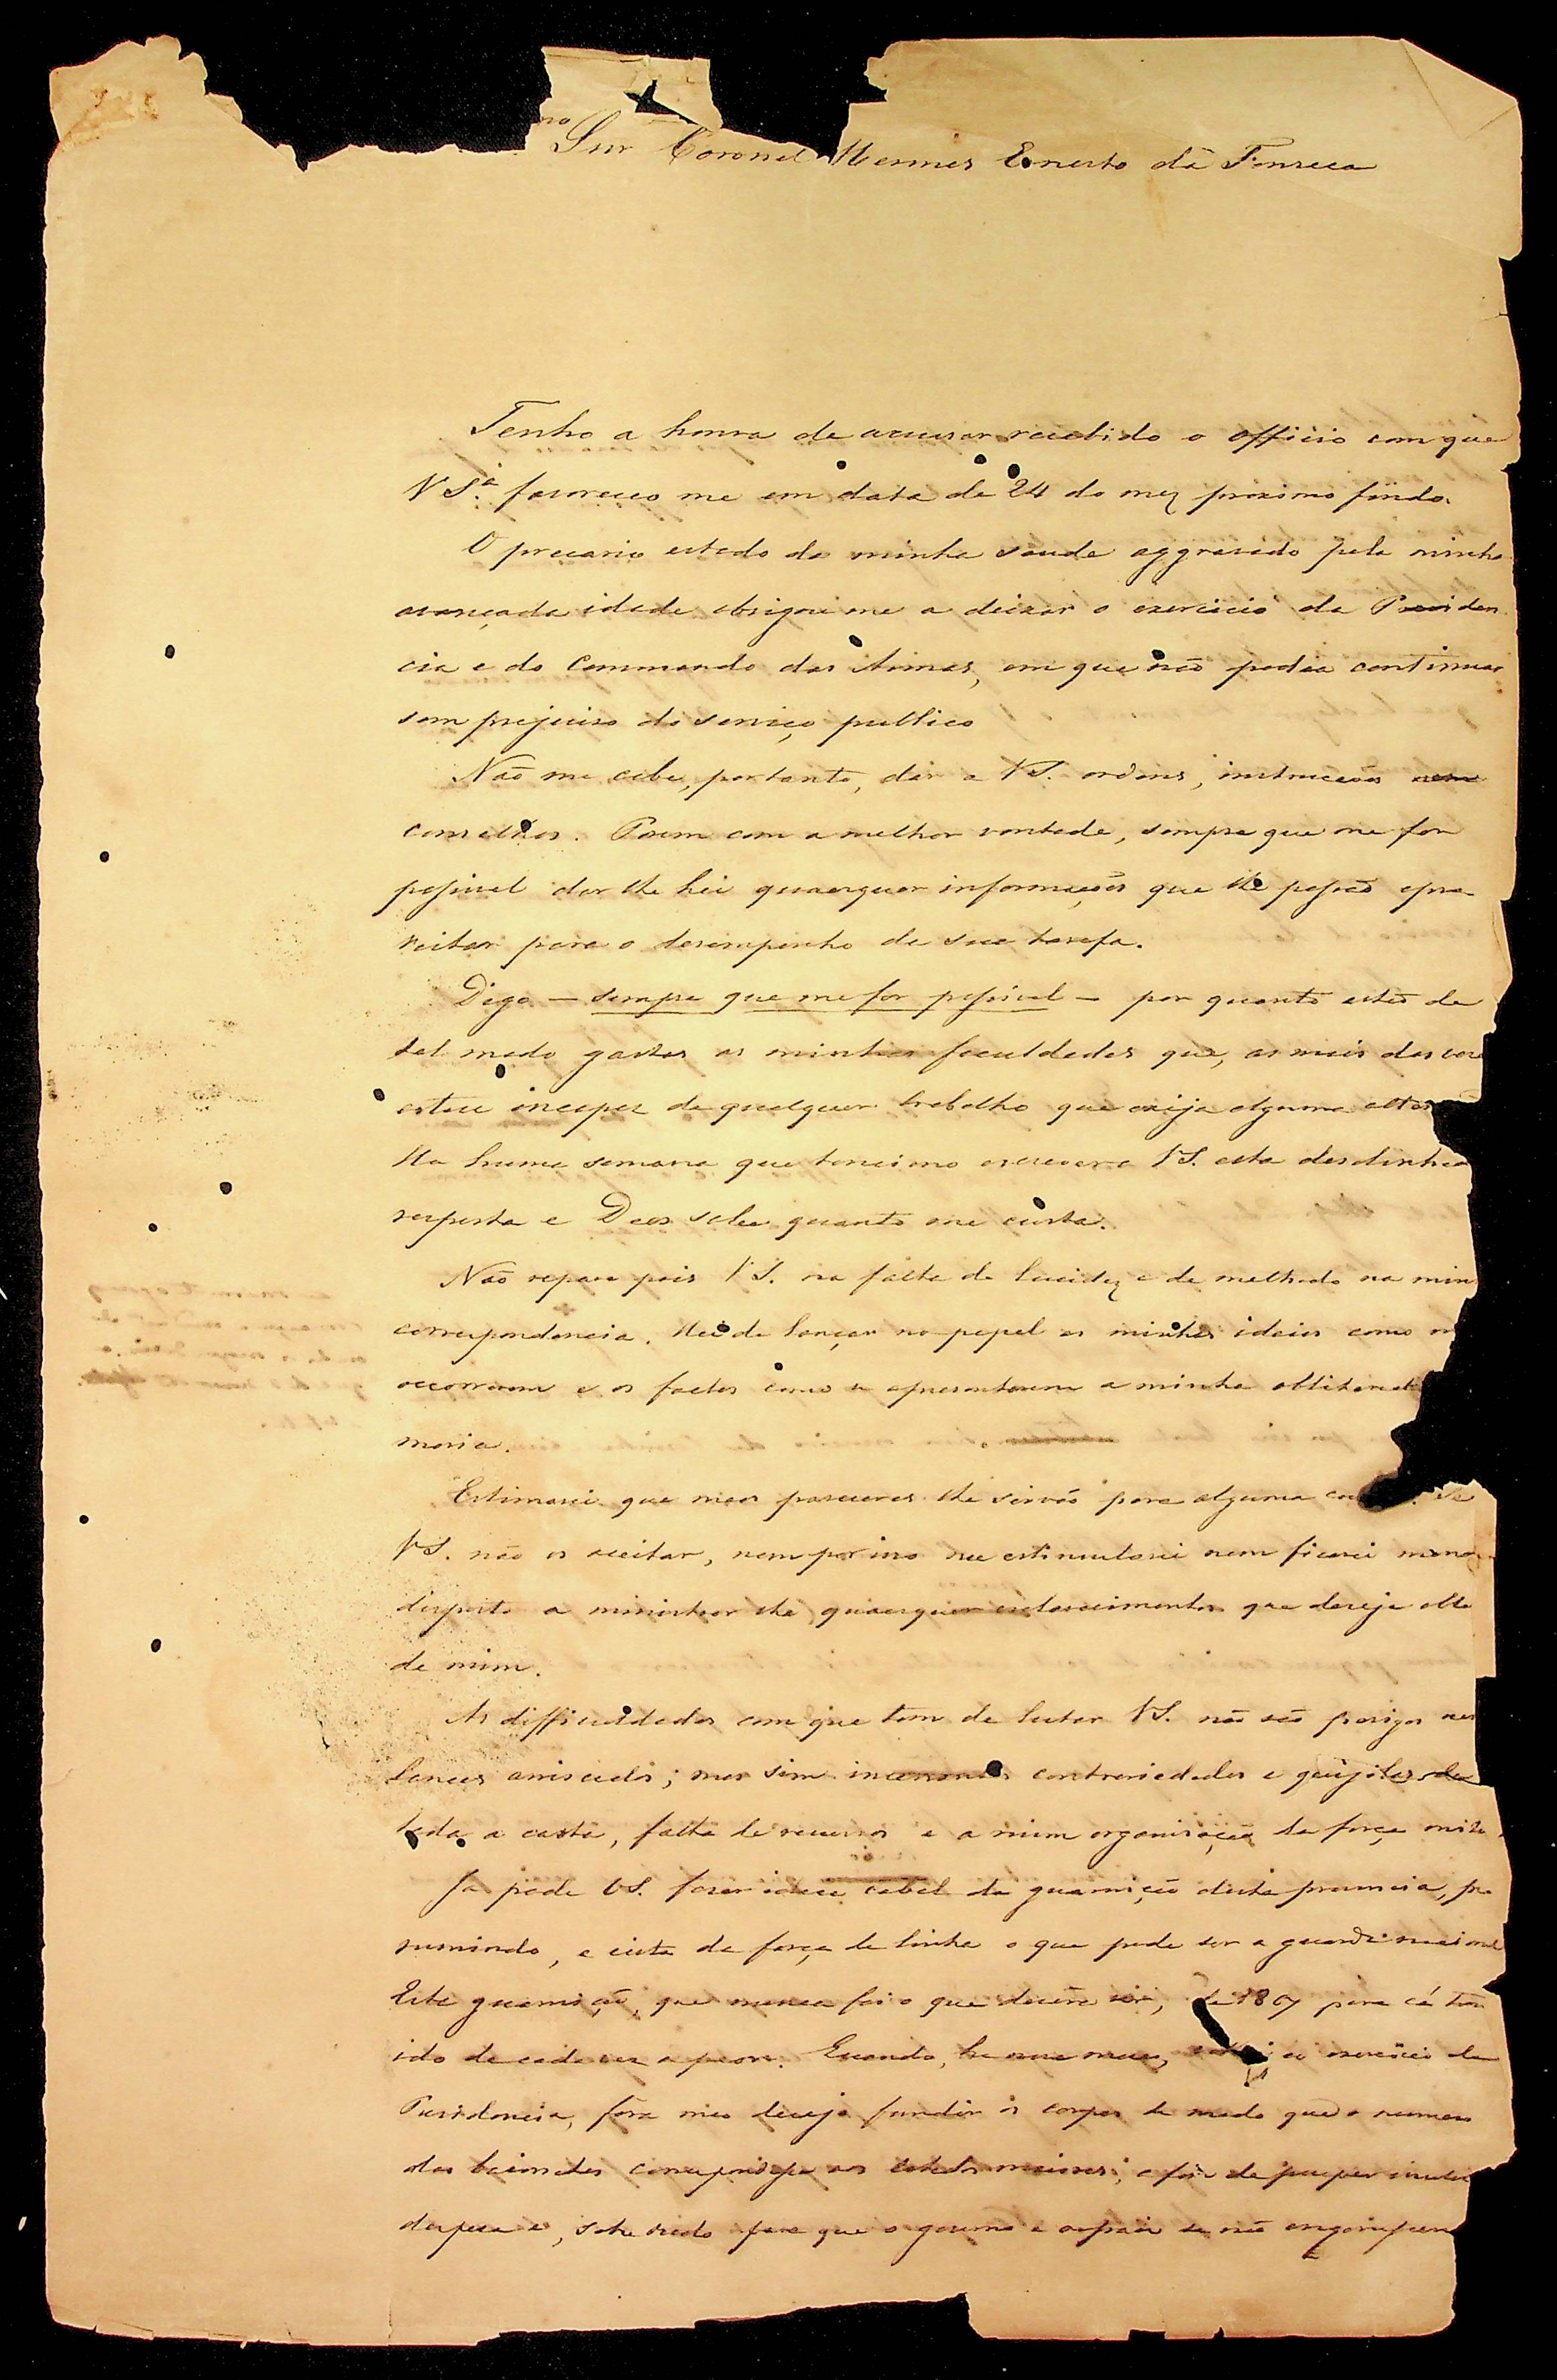 mo Snr Coronel Hermes Ernesto da Fonseca
Tenho a honra de accusar recebido o officio com que
V S.ª favoreceo me em data de 24 do mez proximo findo.
O precario estado da minha saude aggravado pela minha
avançada idade obrigou me a deixar o exercicio da Presiden
cia e do Commando das Armas, em que não podia continuar
sem prejuiso do serviço publico
Não me cabe, portanto, dar a VS. ordens, instrucções nem
conselhos. Porem com a melhor vontade, sempre que me for
possivel dar lhe hei quaesquer informações que lhe possão apro
veitar para o desempenho de sua tarefa.
Digo — sempre que me for possivel — por quanto estão de
tal modo gastas as minhas faculdades que, as mais das veze
estou incapaz de qualquer trabalho que exija alguma atten
Ha huma semana que tencimo escrever a VS. esta desalinhada
resposta e Deos sabe quanto me custa.
Não repare pois VS. na falta de lucidez e de methodo na min
correspondencia. Hei de lançar no papel as minhas ideias como m
occorrerem e os factos como se apresentarem a minha obliterad
moria.
Estimarei que meos pareceres lhe sirvão para alguma Se
VS. não os aceitar, nem por isso me estimularei nem ficarei menos
disposto a ministrar lhe quaesquer esclarecimentos que deseje obte
de mim.
As difficuldades com que tem de lutar VS. não são perigos nem
lances arriscados; mas sim contrariedades e de
toda a casta, falta de recursos e a ruim organisação da força milit
Ja pode VS. faser ideia cabal da guarnição desta provincia, pre
sumindo, a vista da força de linha o que pode ser a guarda nacional
Esta guarnição, que nunca foi o que devera ser, de 1867 para cá tem
ido de cada vez a peor. Quando, ao exercicio da
Presidencia, fora meo desejo fundir os corpos de modo que o numero
das baionetas correspondesse aos estados maiores; a fim de poupar inutil
despesa e, sobre tudo para que o governo e o paiz se não